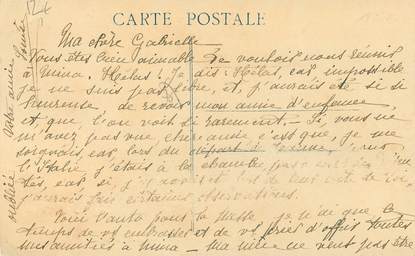 CARTE POSTALE
Ma chère Gabrielle
Vous êtes bien aimable de vouloir nous réunir
à Mina. Hélas! Je dis: Hélas, car impossible
je ne suis pas libre, et, j'aurais été si si
heureuse de revoir mon amie d'enfance
et, que, l'on voit si rarement. Si vous ne
m'avez pas vue c'est que, je me
soignais, car lors du départ de
l'Italie j'étais à la chambre
car si
j'aurais fait certaines observations.
Voici l'auto pour la Messe je n'ai que le
temps de vs embrasser et de vs prier d'offrir toutes
mes amitiés à Mina — Ma mère ne veut pas être
oubliée
Votre amie